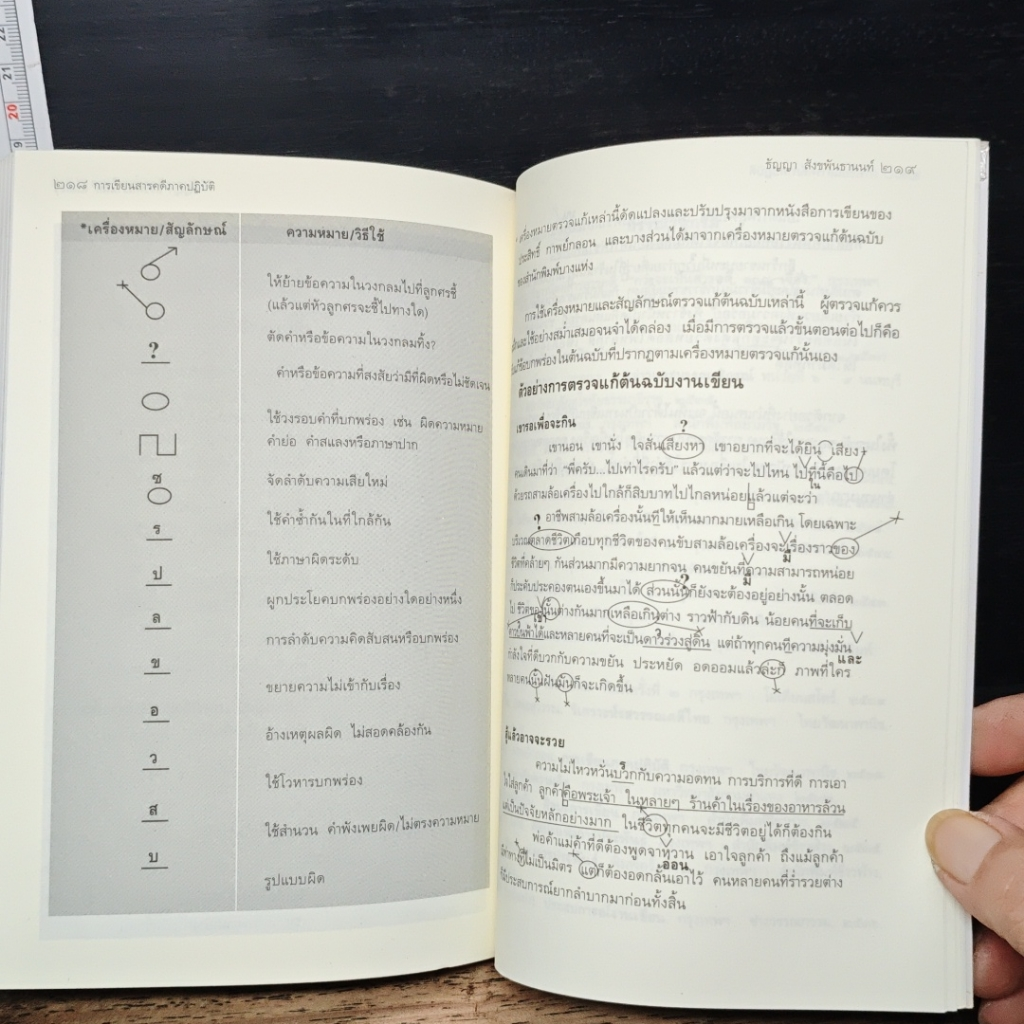 ๒๑๘ การเขียนสารคดีภาคปฏิบัติ
*เครื่องหมาย/สัญลักษณ์ ความหมาย/วิธีใช้
ให้ย้ายข้อความในวงกลมไปที่ลูกศรชี้
(แล้วแต่หัวลูกศรจะชี้ไปทางใด)
ตัดคำหรือข้อความในวงกลมทิ้ง?
? คำหรือข้อความที่สงสัยว่ามีที่ผิดหรือไม่ชัดเจน
ใช้วงรอบคำที่บกพร่อง เช่น ผิดความหมาย
คำย่อ คำสแลงหรือภาษาปาก
จัดลำดับความเสียใหม่
ซ ใช้คำซ้ำกันในที่ใกล้กัน
ร ใช้ภาษาผิดระดับ
ป ผูกประโยคบกพร่องอย่างใดอย่างหนึ่ง
ล การลำดับความคิดสับสนหรือบกพร่อง
ข ขยายความไม่เข้ากับเรื่อง
อ อ้างเหตุผลผิด ไม่สอดคล้องกัน
ว ใช้โวหารบกพร่อง
ส ใช้สำนวน คำพังเพยผิด/ไม่ตรงความหมาย
บ รูปแบบผิด
ธัญญา สังขพันธานนท์ ๒๑๙
* เครื่องหมายตรวจแก้เหล่านี้ดัดแปลงและปรับปรุงมาจากหนังสือการเขียนของ
ประสิทธิ์ กาพย์กลอน และบางส่วนได้มาจากเครื่องหมายตรวจแก้ต้นฉบับ
ของสำนักพิมพ์บางแห่ง
การใช้เครื่องหมายและสัญลักษณ์ตรวจแก้ต้นฉบับเหล่านี้ ผู้ตรวจแก้ควร
และใช้อย่างสม่ำเสมอจนจำได้คล่อง เมื่อมีการตรวจแล้วขั้นตอนต่อไปก็คือ
ข้อบกพร่องในต้นฉบับที่ปรากฏตามเครื่องหมายตรวจแก้นั้นเอง
ตัวอย่างการตรวจแก้ต้นฉบับงานเขียน
เขารอเพื่อจะกิน
?
เขานอน เขานั่ง ใจสั่นเสียงหา เขาอยากที่จะได้ยิน เสียง
คนเดินมาที่ว่า "พี่ครับ...ไปเท่าไรครับ" แล้วแต่ว่าจะไปไหน ไปที่นี้คือไป
ใน
ด้วยรถสามล้อเครื่องไปใกล้ก็สิบบาทไปไกลหน่อยแล้วแต่จะว่า
?
อาชีพสามล้อเครื่องนั้นทีให้เห็นมากมายเหลือเกิน โดยเฉพาะ
ตลาดชีวิตเกือบทุกชีวิตของคนขับสามล้อเครื่องจะเรื่องราวของ
มี
ชีวิตที่คล้ายๆ กันส่วนมากมีความยากจน คนขยันที่ความสามารถหน่อย
? มี
ก็ประคับประคองตนเองขึ้นมาได้ ส่วนนั้นก็ยังจะต้องอยู่อย่างนั้น ตลอด
ไป ชีวิตของนั้นต่างกันมากเหลือเกินต่าง ราวฟ้ากับดิน น้อยคนที่จะเก็บ
เขา
ดาวบนฟ้าได้และหลายคนที่จะเป็นดาวร่วงสู่ดิน แต่ถ้าทุกคนทีความมุ่งมั่น
และ
กำลังใจที่ดีบวกกับความขยัน ประหยัด อดออมแล้วล่ะก็ ภาพที่ใคร
หลายคนนั้นฝันมันก็จะเกิดขึ้น
สู้แล้วอาจจะรวย
ความไม่ไหวหวั่นบวกกับความอดทน การบริการที่ดี การเอา
ใจใส่ลูกค้า ลูกค้าคือพระเจ้า ในหลายๆ ร้านค้าในเรื่องของอาหารล้วน
แต่เป็นปัจจัยหลักอย่างมาก ในชีวิตทุกคนจะมีชีวิตอยู่ได้ก็ต้องกิน
พ่อค้าแม่ค้าที่ดีต้องพูดจาหวาน เอาใจลูกค้า ถึงแม้ลูกค้า
อ่อน
ไม่เป็นมิตร แต่ก็ต้องอดกลั้นเอาไว้ คนหลายคนที่ร่ำรวยต่าง
ประสบการณ์ยากลำบากมาก่อนทั้งสิ้น